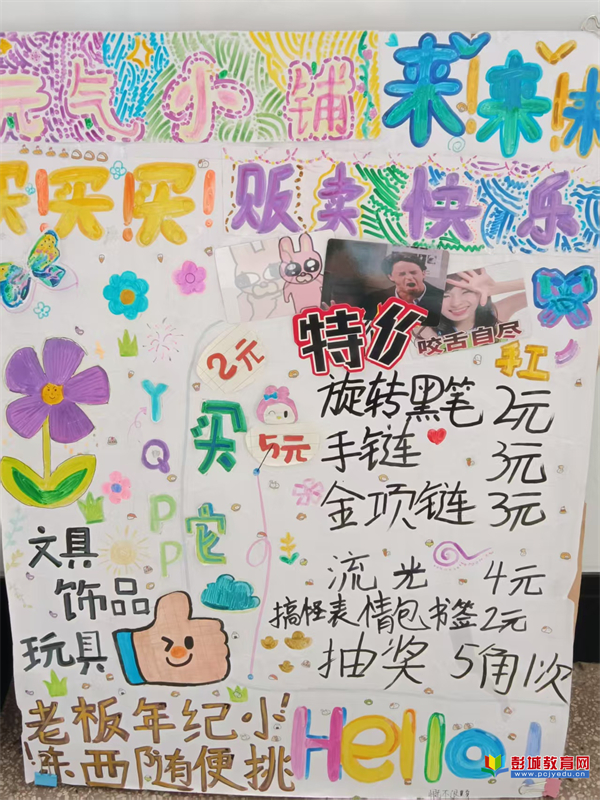 元气小铺 来!来!来
买!买!买! 贩卖快乐
特价
咬舌自尽
2元
5元
买它
Y
Q
P P
旋转黑笔 2元
手链 3元
金项链 3元
流光 4元
搞怪表情包书签 2元
抽奖 5角1次
文具
饰品
玩具
老板年纪小
东西随便挑
Hello!
彭城教育网
www.pcjyedu.cn